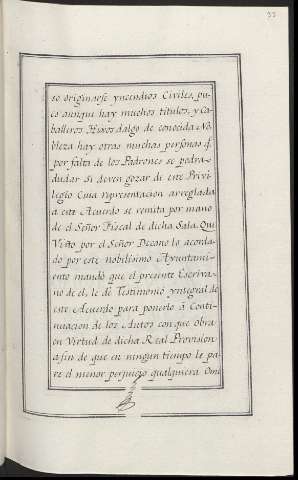 33
so originarse yncendios Civiles, pu-
es aunqui hay muchos titulos, y Ca-
balleros Hixos dalgo de conocida No-
bleza hay otras muchas personas q.
por falta de los Padrones se podra-
dudar Si deven gozar de este Privi-
legio Cuia representacion arreglada
a este Acuerdo se remita por mano
de el Señor Fiscal de dicha Sala. Qui
Visto por el Señor Decano lo acorda-
do por este nobilisimo Ayuntami-
ento mandò que el presente Escriva-
no de él, le dé Testimonio yntegral de
este Acuerdo para ponerlo á Conti-
nuacion de los Autos con que Obra
en Virtud de dicha Real Provision
a fin de que en ningun tiempo le pa-
re el menor perjuicio qualquiera Omi